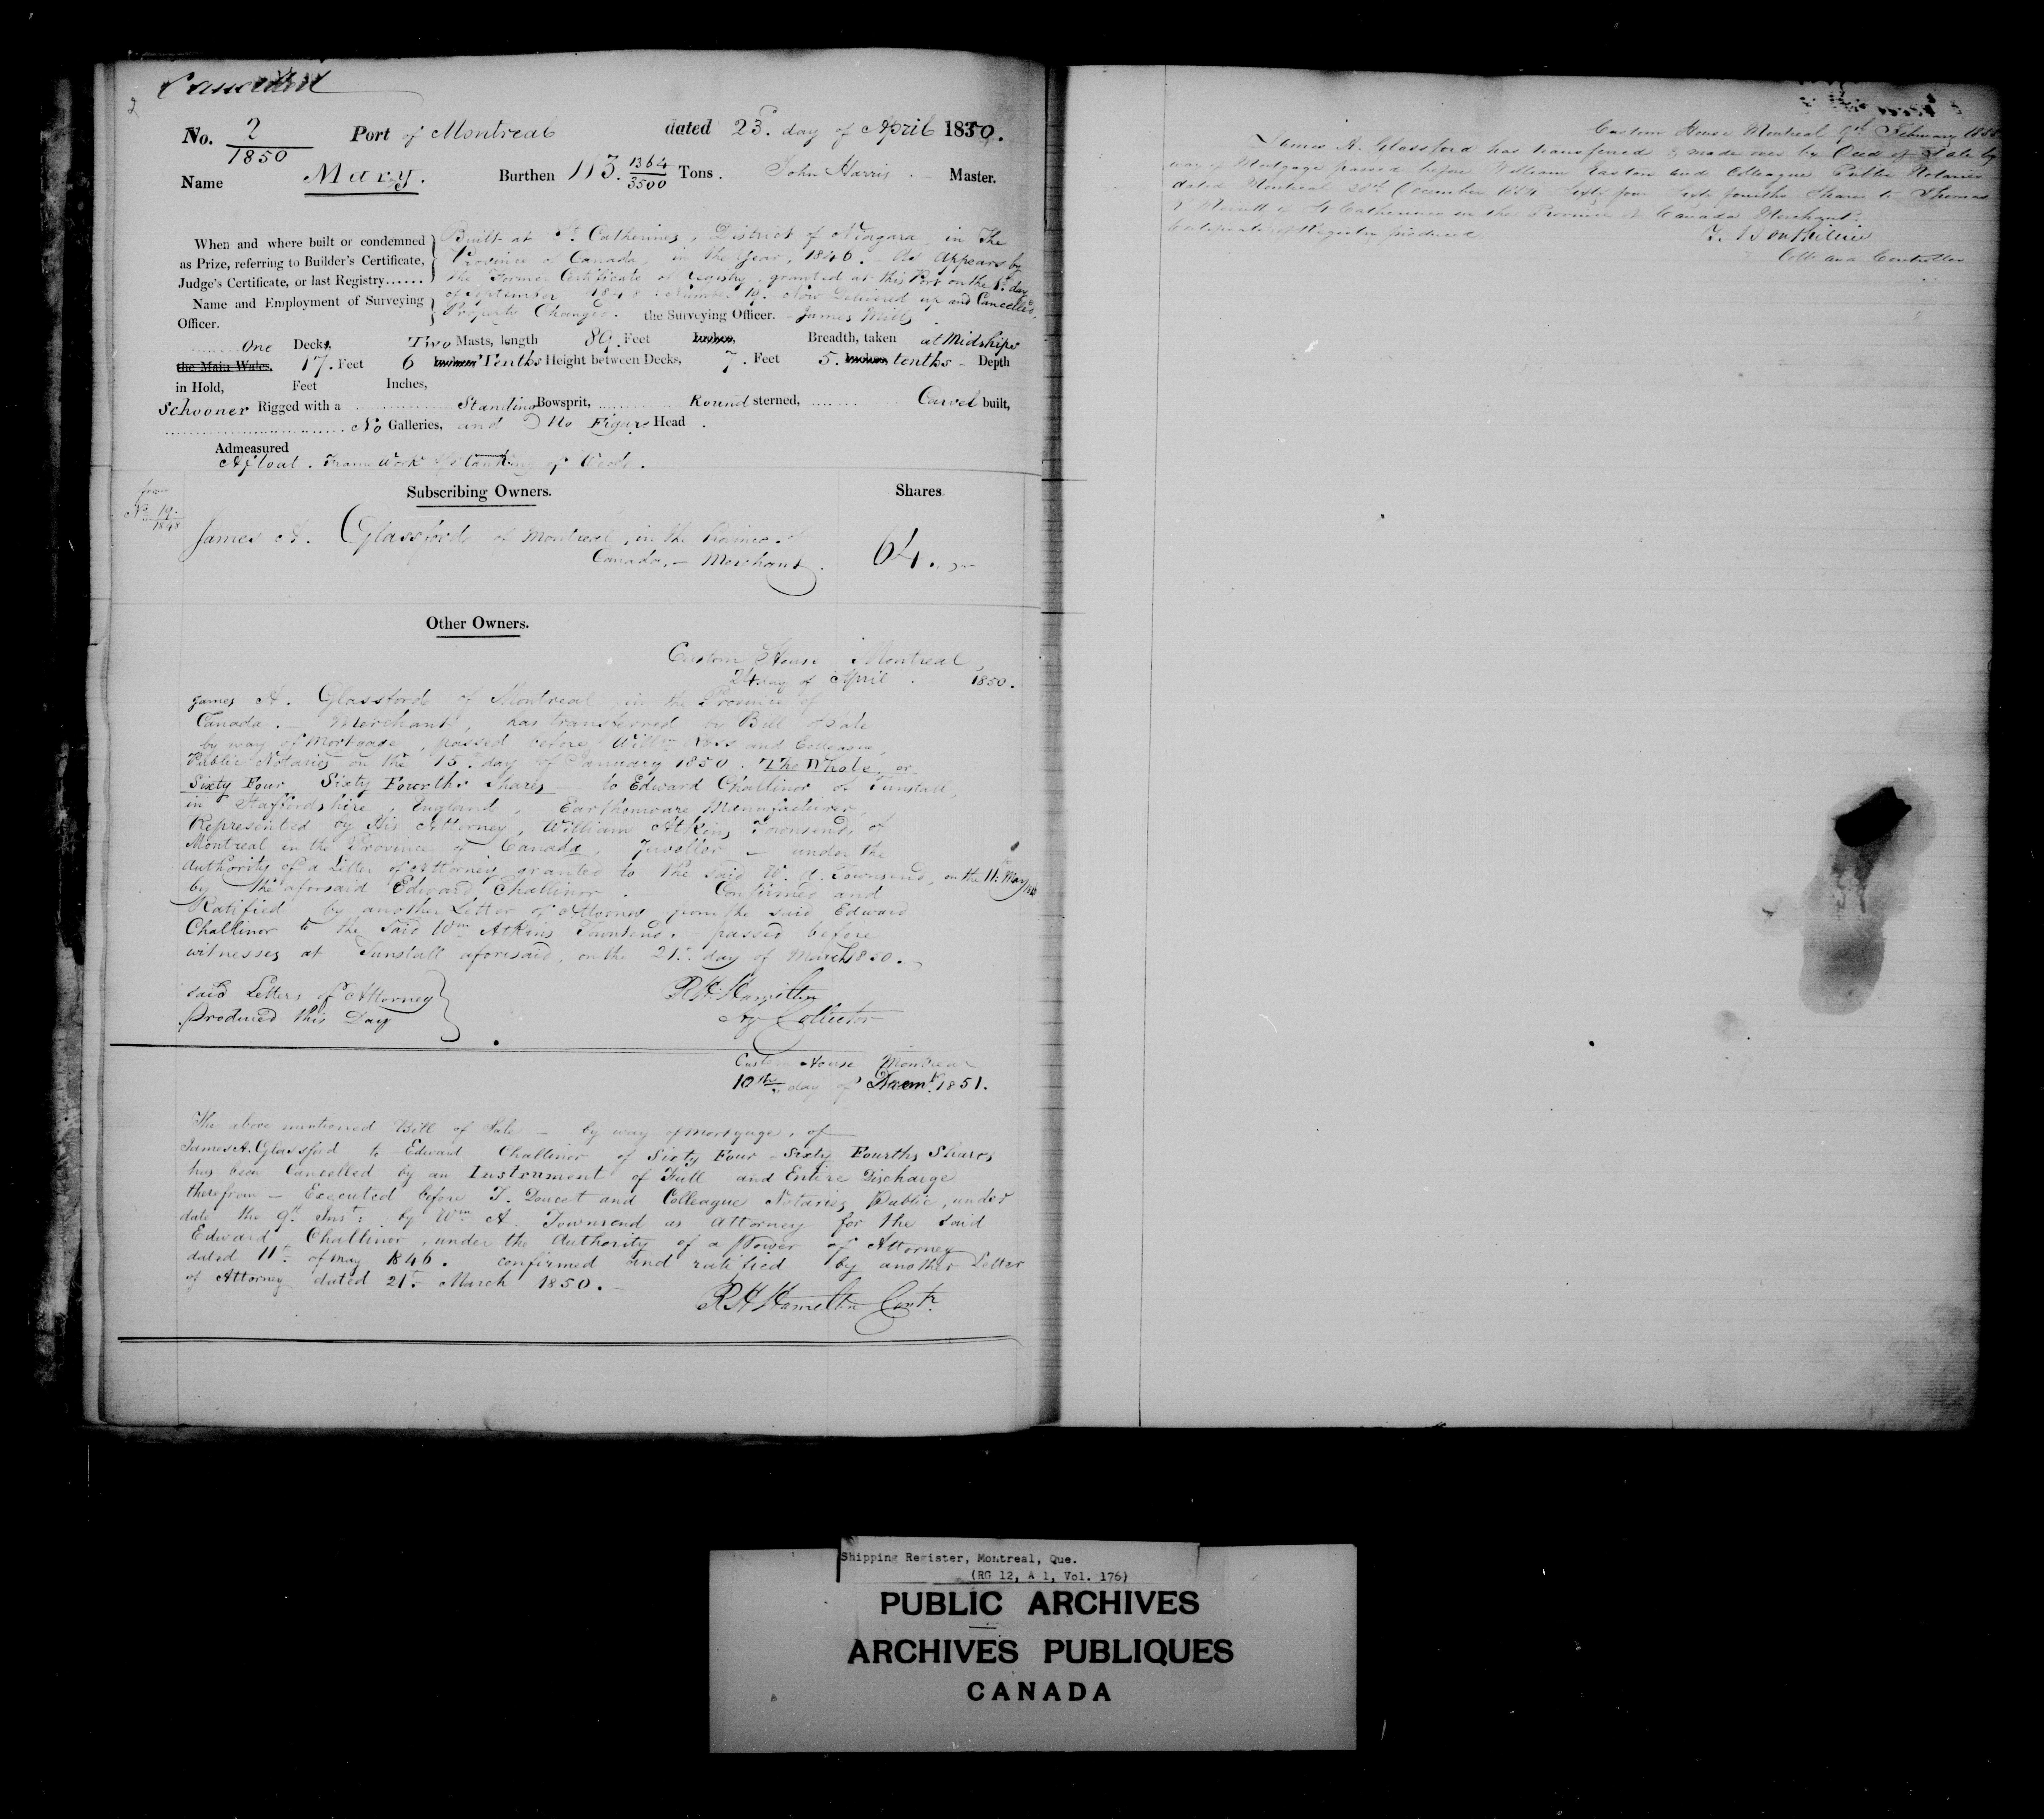 Cancelled
2
No. 2/1850 Port of Montreal dated 23d. day of April 1850.
Name Mary. Burthen 113. 1364/3500 Tons. John Harris. Master.
When and where built or condemned as Prize, referring to Builder's Certificate, Judge's Certificate, or last Registry......
Built at St. Catherines, District of Niagara in The
Province of Canada, in the Year, 1846. As Appears by
the Former Certificate of Registry, granted at this Port on the day
of September 1848. Number 19. Now Delivered up and Cancelled,
Name and Employment of Surveying Officer.
Property Changed. the Surveying Officer. James Mills
One Decks, Two Masts, length 89. Feet Inches, Breadth, taken at Midships
the Main Wales, 17. Feet 6 Inches Tenths Height between Decks, 7. Feet 5. Inches tenths - Depth
in Hold, Feet Inches,
Schooner Rigged with a Standing Bowsprit, Round sterned, Carvel built,
No Galleries, and No Figure Head.
Admeasured
Afloat. Frame Work & Planking of Wood.
from
No. 19.
1848
Subscribing Owners. Shares
James A. Glassford of Montreal, in the Province of
Canada, - Merchant. 64.
Other Owners.
Custom House Montreal,
24 day of April 1850.
James A. Glassford of Montreal in the Province of
Canada. - Merchant, has transferred by Bill of Sale
by way of Mortgage, passed before Willm Ross and Colleague,
Public Notaries on the 15th day of January 1850. The Whole or
Sixty Four, Sixty Fourths Shares - to Edward Challinor of Tunstall,
in Staffordshire, England, Earthenware Manufacturer,
Represented by His Attorney, William Atkins Townsend, of
Montreal in the Province of Canada, Jeweller - under the
Authority of a Letter of Attorney granted to the said W. A. Townsend, on the 11th May 46
by the aforsaid Edward Challinor. Confirmed and
Ratified by another Letter of Attorney from the said Edward
Challinor to the Said Wm Atkins Townsend. passed before
witnesses at Tunstall aforesaid, on the 21st day of March 1850.
said Letters of Attorney
produced this Day
R H Hamilton
Ag Collector
Custom House Montreal
10th day of Decemr. 1851.
The above mentioned Bill of Sale - by way of mortgage, of
James A. Glassford to Edward Challinor of Sixty Four - Sixty Fourths Shares
has been Cancelled by an Instrument of Full and Entire Discharge
therefrom - Executed before T. Doucet and Colleague Notaries Public, under
date the 9th Inst: by Wm A. Townsend as Attorney for the said
Edward Challinor, under the Authority of a Power of Attorney
dated 11th of May 1846. confirmed and ratified by another Letter
of Attorney dated 21st March 1850.
R H Hamilton Contr.
Custom House Montreal 9th February 1855
James A. Glassford has transferred & made over by Deed of Sale by
way of Mortgage passed before William Easton and Colleague Public Notaries
dated Montreal 28th December 1854 Sixty four Sixty fourths Shares to Thomas
R Merritt of St Catherines in the Province of Canada Merchant.
Certificate of Registry produced
Collr and Controller
Shipping Register, Montreal, Que.
(RG 12, A 1, Vol. 176)
PUBLIC ARCHIVES
ARCHIVES PUBLIQUES
CANADA